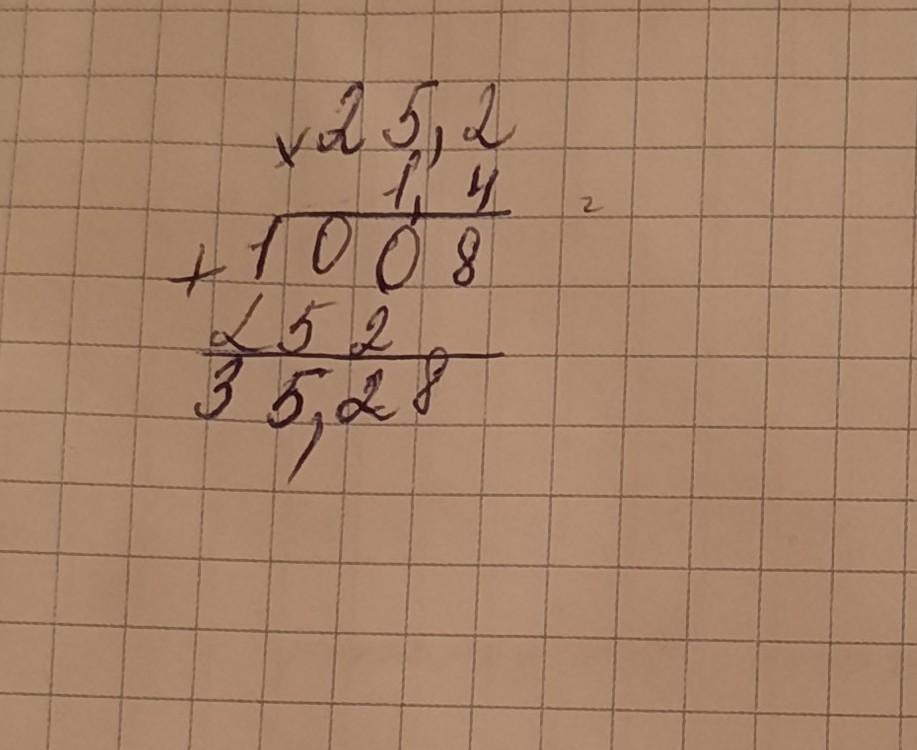 ×25,2
1,4
+1008
252
35,28